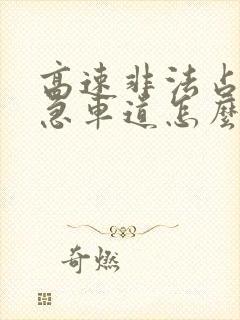 高速非法占
急车道怎麼
奇燃